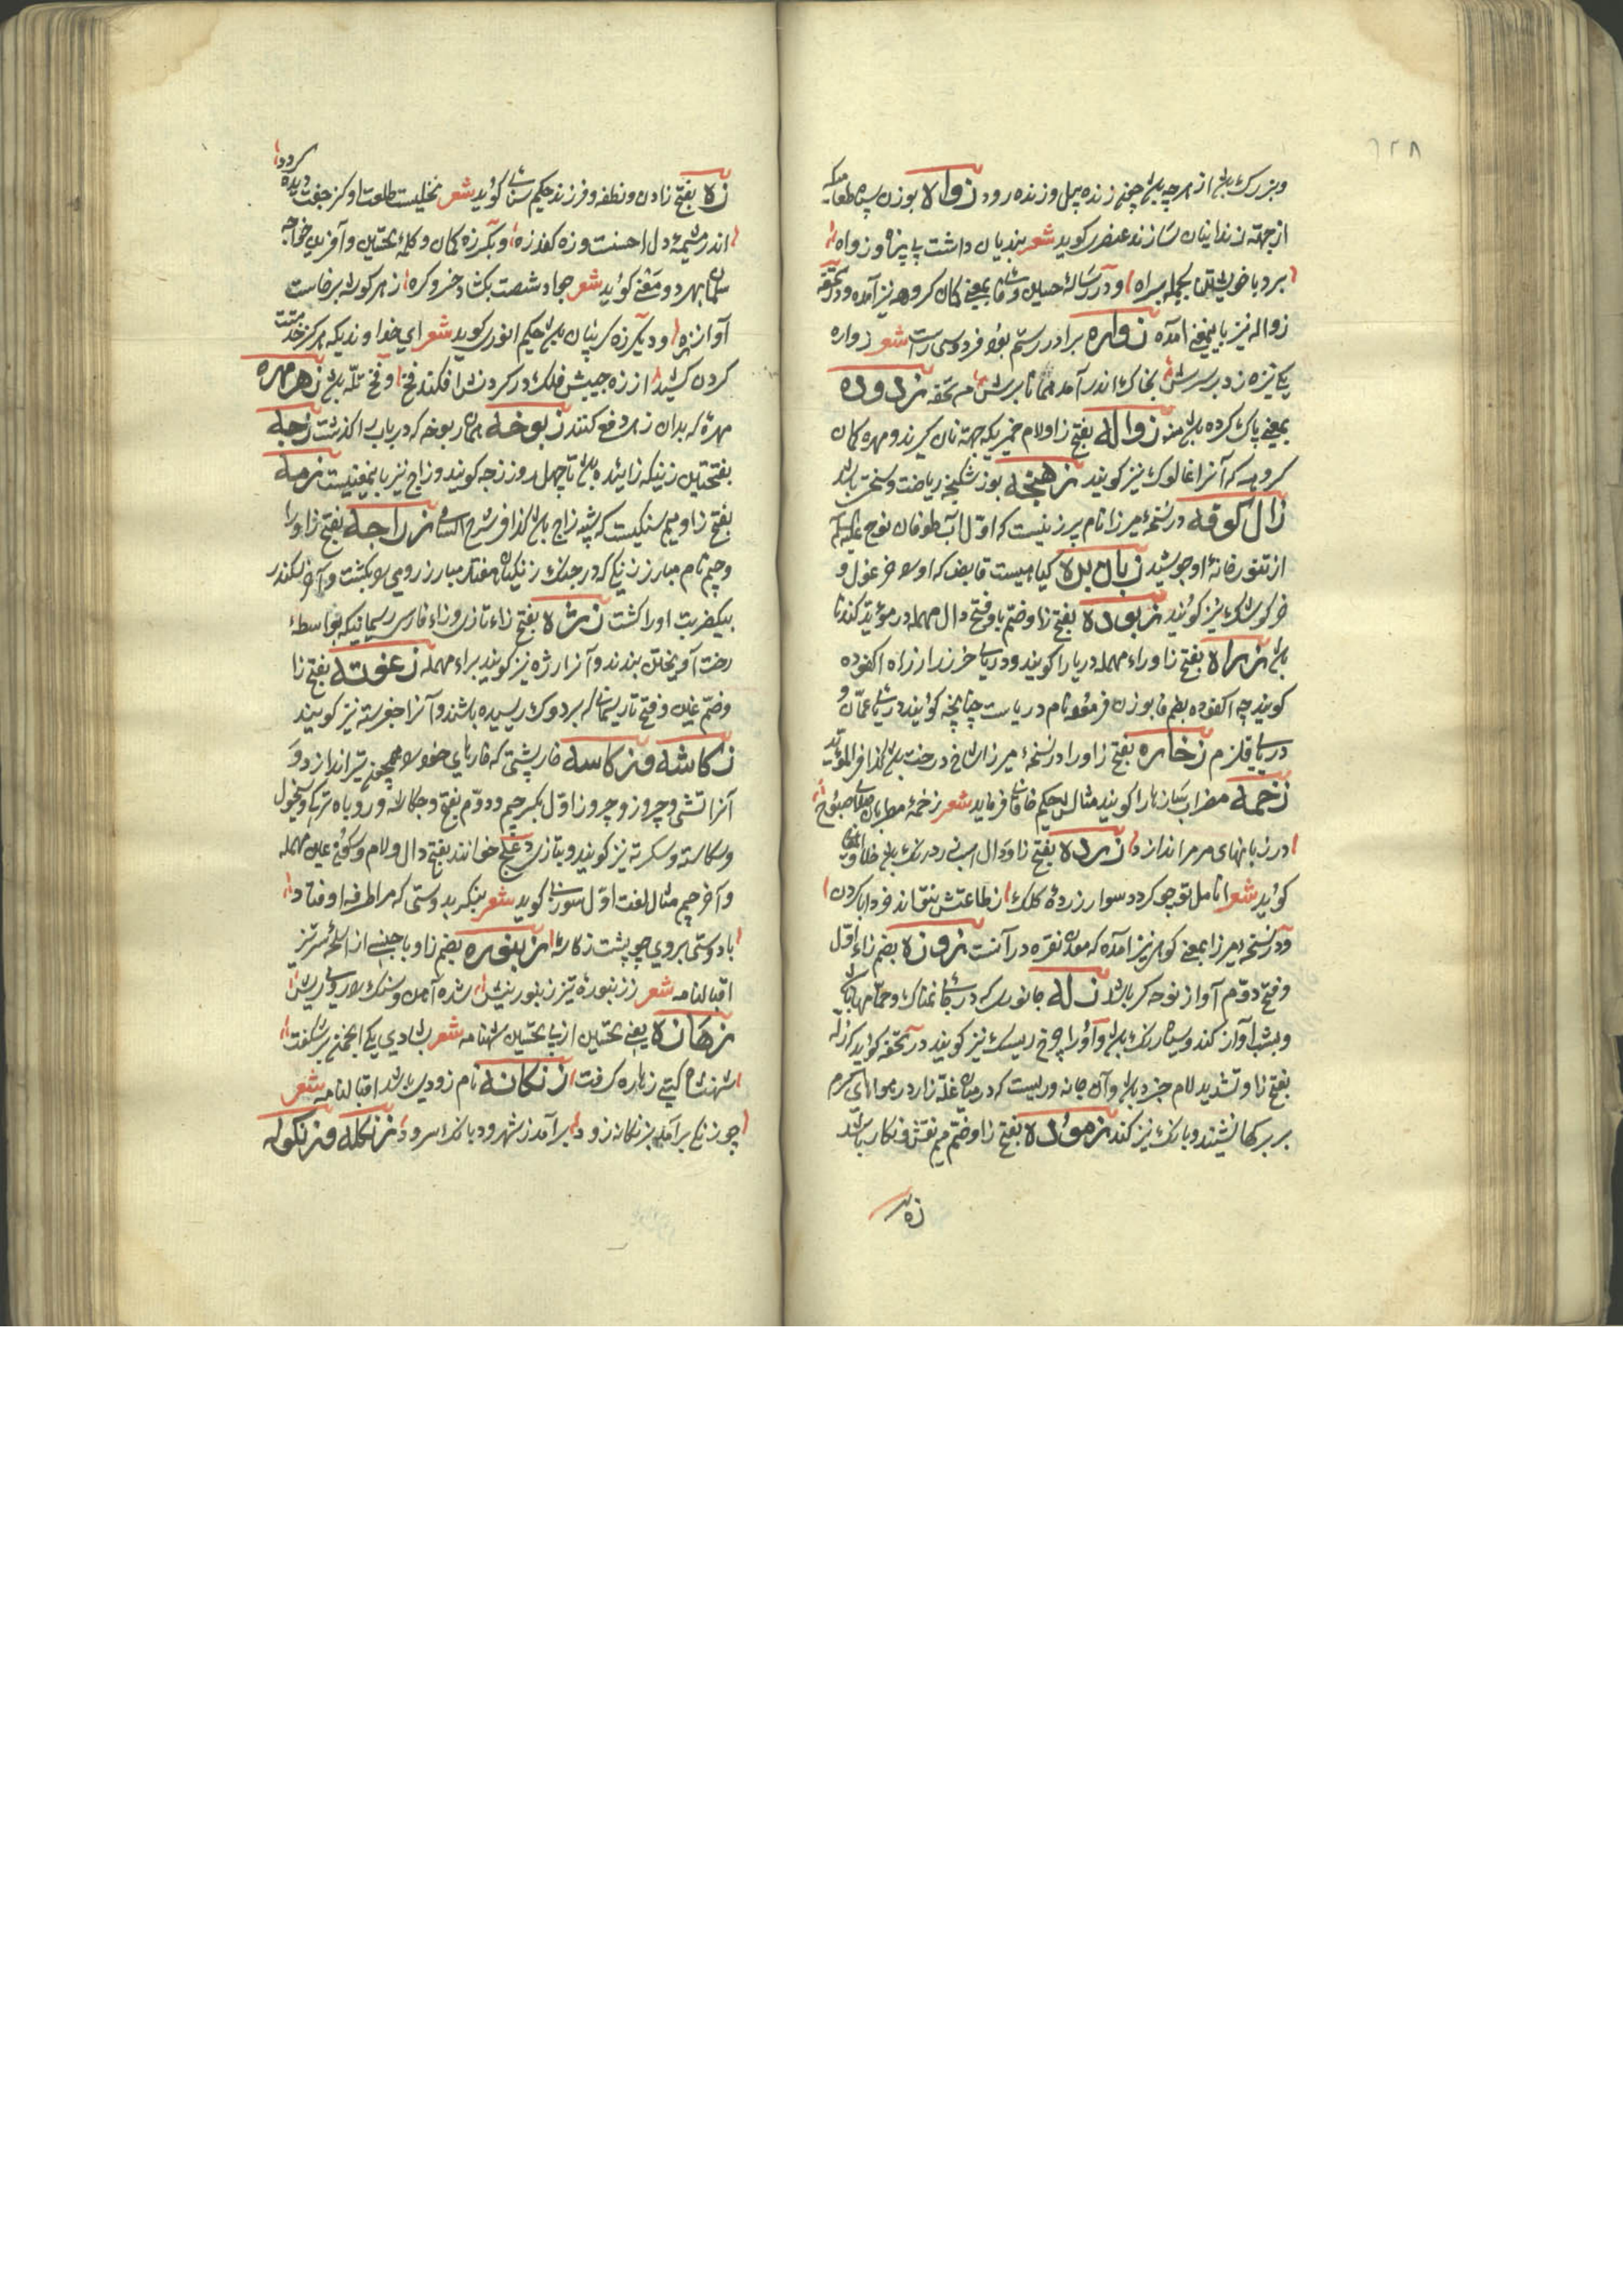 ۶۲۸
وبزرک باشد از هرچه باشد چون زنده پیل وزنده رود زواه بوزن سپاه طعامیکه
ازجهته زندانیان سازند عنصری کوید شعر بندیان داشت بی پناه وزواه
برد باخویشتن بجمله براه ودر رسالۀ حسین وفائی بمعنی کمان کروهه نیز آمده ودر تحفه
زواله نیز باینمعنی آمده زواره برادر رستم بود فردوسی راست شعر زواره
یکی نیزه زد بر سرش بخاک اندر آمد همانا برش م تحفه زدوده
بمعنی پاک کرده باشد منه زواله بفتح زا ولام خمیریکه جهته نان کیرند ومهره کمان
کروهه که آنرا غالوک نیز کویند زاهنجه بوزن شکنجه ریاضت وسختی باشد
زال کوفه در نسخۀ میرزا نام پیر زنیست که اوّل آب طوفان نوح علیه السلم
از تنور خانۀ او جوشید زبان بره کیاهیست قابض که اورا خرغول و
خرکوشک نیز کویند زبوده بفتح زا وضمّ با وفتح دال مهمله در مؤید کندنا
باشد زراه بفتح زا وراء مهمله دریارا کویند ودریای خزر را زراه اکفوده
کویند چه اکفوده بضم فا بوزن فرموده نام دریاست چنانچه کویند دریای عمّان و
دریای قلزم زخاره بفتح زا ورا در نسخۀ میرزا شاخ درخت باشد کذا فی المؤید
زخمه مضراب سازهارا کویند مثالش حکیم خاقانی فرماید شعر زخمۀ مطربان صلای صبوح
در زبانهای مزمر اندازد زرده بفتح زا ودال اسبی زرد رنک باشد خلاق المعانی
کوید شعر انامل تو چو کردد سوار زردۀ کلک زطاعتش نتواند خرد ابا کردن
ودر نسخه میرزا بمعنی کوهی نیز آمده که معدن نقره در آنست زوزه بضم زاء اوّل
وفتح دوّم آواز نوحه کر باشد زله جانوری که در جاهای نمناک وحمّامها باشد
وبشب آواز کند وسیاه رنک باشد واورا چرخ ریسک نیز کویند در تحفه کوید که زله
بفتح زا وتشدید لام جزد باشد وآن جانوریست که در میان غلّه زار در هوای کرم
بر برکها نشیند وبانک نیز کند زموده بفتح زا وضمّ میم نقش ونکار باشد
زه
زه بفتح زادن ونطفه وفرزند حکیم سنائی کوید شعر نخلیست طلعت او کز جفت دیده کردد
اندر مشیمۀ دل احسنت وزه کند زه وبکسر زه کمان وکلمۀ تحسین وآفرین خواجه
سلمان بهر دو معنی کوید شعر چو اد شصت بکشاد خسرو کره زهر کوشه برخاست
آواز زه ودیکر زه کریبان باشد حکیم انوری کوید شعر ای خداوندیکه هر کز خدمتت
کردن کشید از زه جیبش فلک در کردنش افکند فخ وفخ تله باشد زهر مهره
مهرۀ که بدان زهر دفع کنند زبوخه همان ربوخه که درباب را کذشت زجه
بفتحتین زنیکه زائیده باشد تا چهل روز زجه کویند وزاج نیز باینمعنیست زمه
بفتح زا ومیم سنکیست که شبیه زاج باشد کذا فی شرح السامی زراجه بفتح زا ورا
وجیم نام مبارز زنکی که در جنک زنکیان هفتاد مبارز رومی را بکشت وآخر اسکندر
بیکضربت اورا کشت زره بفتح زاء تازی وزاء فارسی ریسمانیکه بواسطۀ
رخت آویختن بندند وآنرا رژه نیز کویند براء مهمله زغوته بفتح زا
وضمّ غین وفتح تا ریسمانی که بر دوک ریسیده باشند وآنرا جغرسته نیز کویند
زکاشه وزکاسه خارپشتی که خارهای خودرا همچون تیر اندازد و
آنرا تشی وچروز وچروز اوّل بکسر جیم ودوّم بفتح وجکاله وروباه ترکی وسیخول
وسکاسه وسکرنه نیز کویند وبتازی دعلج خوانند بفتح دال ولام وسکون عین مهمله
وآخر جیم مثال لغت اوّل سوزنی کوید شعر بنکر بدوستی که مرا طرفه اوفتاد
با دوستی بروی چو پشت زکاشه زنبوره بضم زا وبا جنسی از اسلحۀ سرتیز
اقبالنامه شعر ززنبورۀ تیز زنبورنیش شده آهن وسنک را روی ریش
زهازه یعنی تحسین از پی تحسین شهنامه شعر بشادی یکی انجمن بر شکفت
شهنشاه کیتی زهازه کرفت زنکانه نام رودی باشد اقبالنامه شعر
چو زنکی برآمد بزنکانه رود برآمد زشهرود بانک سرود زنکله وزنکوله